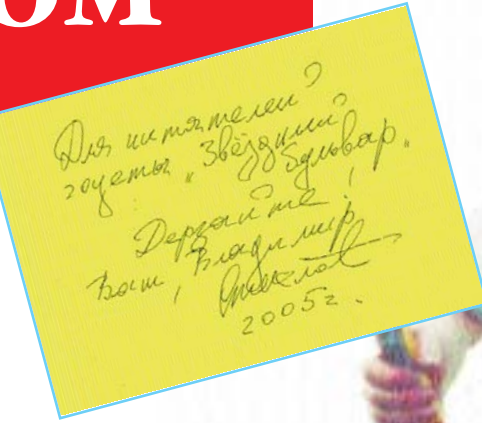 ОМ
Для читателей
газеты „Звёздный
бульвар"
Дерзайте!
Ваш, Владимир
2005г.